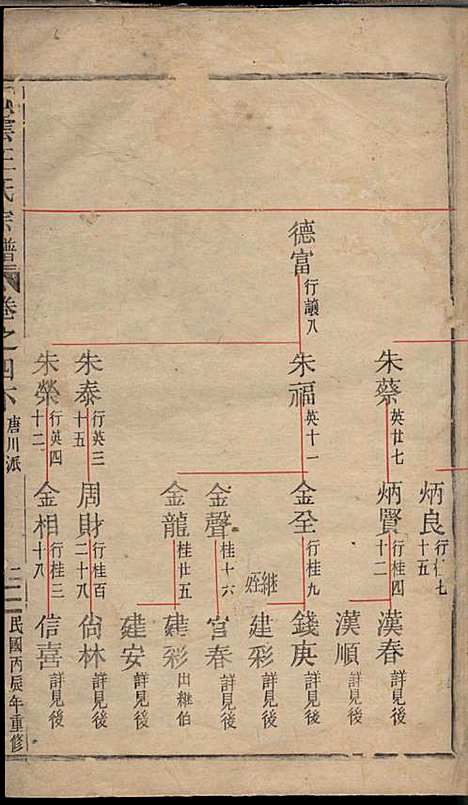 炳良 行仁七十五
朱蔡 英廿七
炳賢 行桂四十二
漢春 詳見後
漢順 詳見後
德富 行議八
朱福 英十一
金全 行桂九
錢庚 詳見後
繼姪
建彩 詳見後
金聲 桂十六
官春 詳見後
金龍 桂廿五
建彩 出繼伯
建安 詳見後
朱泰 行英三十五
周財 行桂百二十八
尙林 詳見後
朱榮 行英四十二
金相 行桂三十八
信喜 詳見後
雲王氏宗譜 卷之四 唐川派 二 民國丙辰年重修